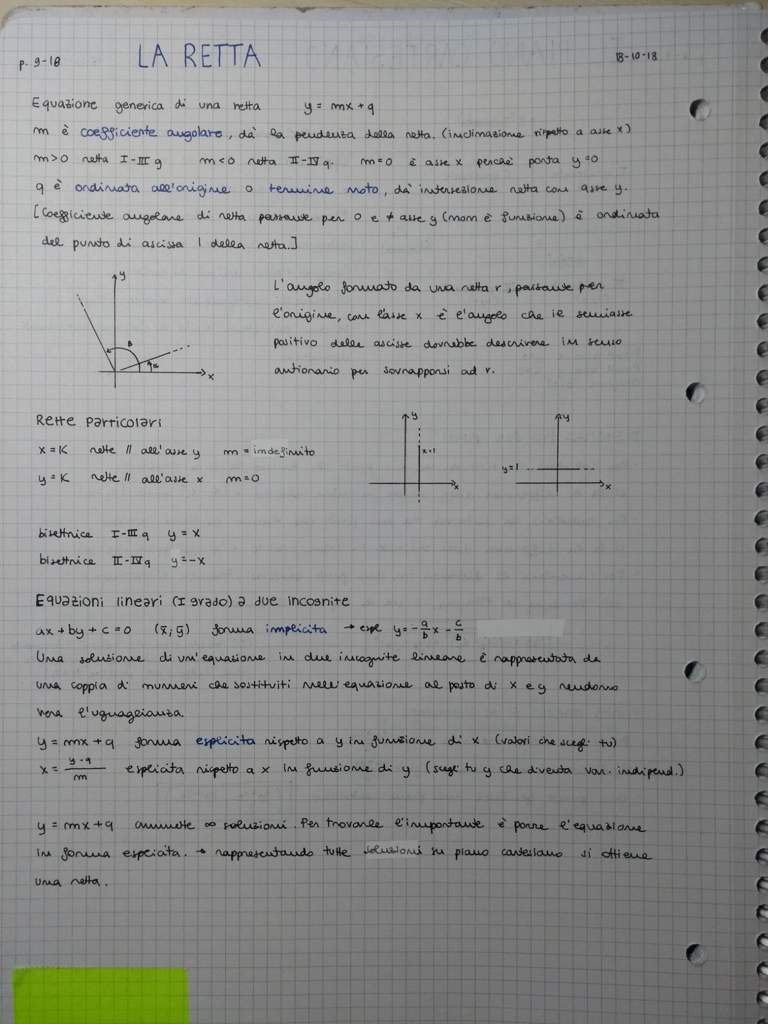 p. 9-18
LA RETTA
18-10-18
Equazione generica di una retta y = mx + q
m è coefficiente angolare, dà la pendenza della retta. (inclinazione rispetto a asse x)
m>0 retta I-III q m<0 retta II-IV q. m=0 è asse x perché porta y=0
q è ordinata all'origine o termine noto, dà intersezione retta con asse y.
[Coefficiente angolare di retta passante per 0 e ≠ asse y (non è funzione) è ordinata
del punto di ascissa 1 della retta.]
y
β
α
x
L'angolo formato da una retta r, passante per
l'origine, con l'asse x è l'angolo che il semiasse
positivo delle ascisse dovrebbe descrivere in senso
antiorario per sovrapporsi ad r.
Rette particolari
x = K rette // all'asse y m = indefinito
y = K rette // all'asse x m = 0
y
x=1
x
y
y=1
x
bisettrice I-III q y = x
bisettrice II-IV q y = -x
Equazioni lineari (I grado) a due incognite
ax + by + c = 0 (x̄; ȳ) forma implicita → espl y = -a/b x - c/b
Una soluzione di un'equazione in due incognite lineare è rappresentata da
una coppia di numeri che sostituiti nell'equazione al posto di x e y rendono
vera l'uguaglianza.
y = mx + q forma esplicita rispetto a y in funzione di x (valori che scegli tu)
x = y-q/m esplicita rispetto a x in funzione di y (scegli tu y che diventa var. indipend.)
y = mx + q ammette ∞ soluzioni. Per trovarle l'importante è porre l'equazione
in forma esplicita. → rappresentando tutte soluzioni su piano cartesiano si ottiene
una retta.